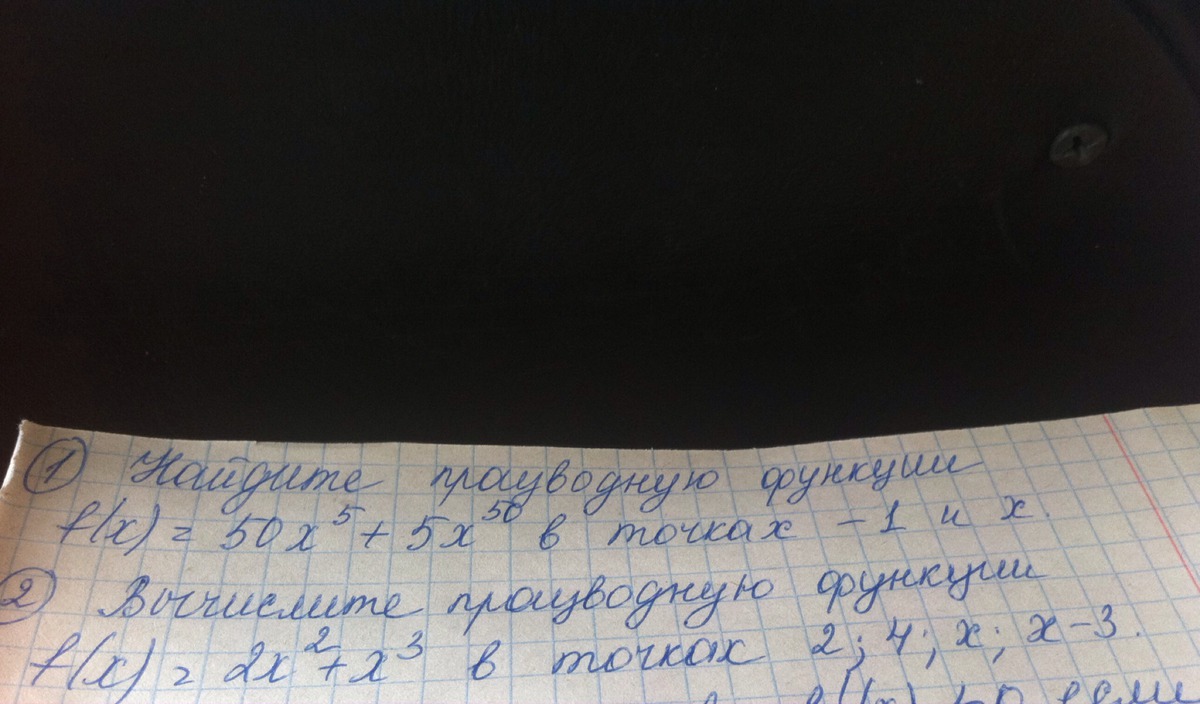 ① Найдите прoизводную функции
f(x) = 50x⁵ + 5x⁵⁰ в точках -1 и x.
② Вычислите производную функции
f(x) = 2x² + x³ в точках 2; 4; x; x-3.